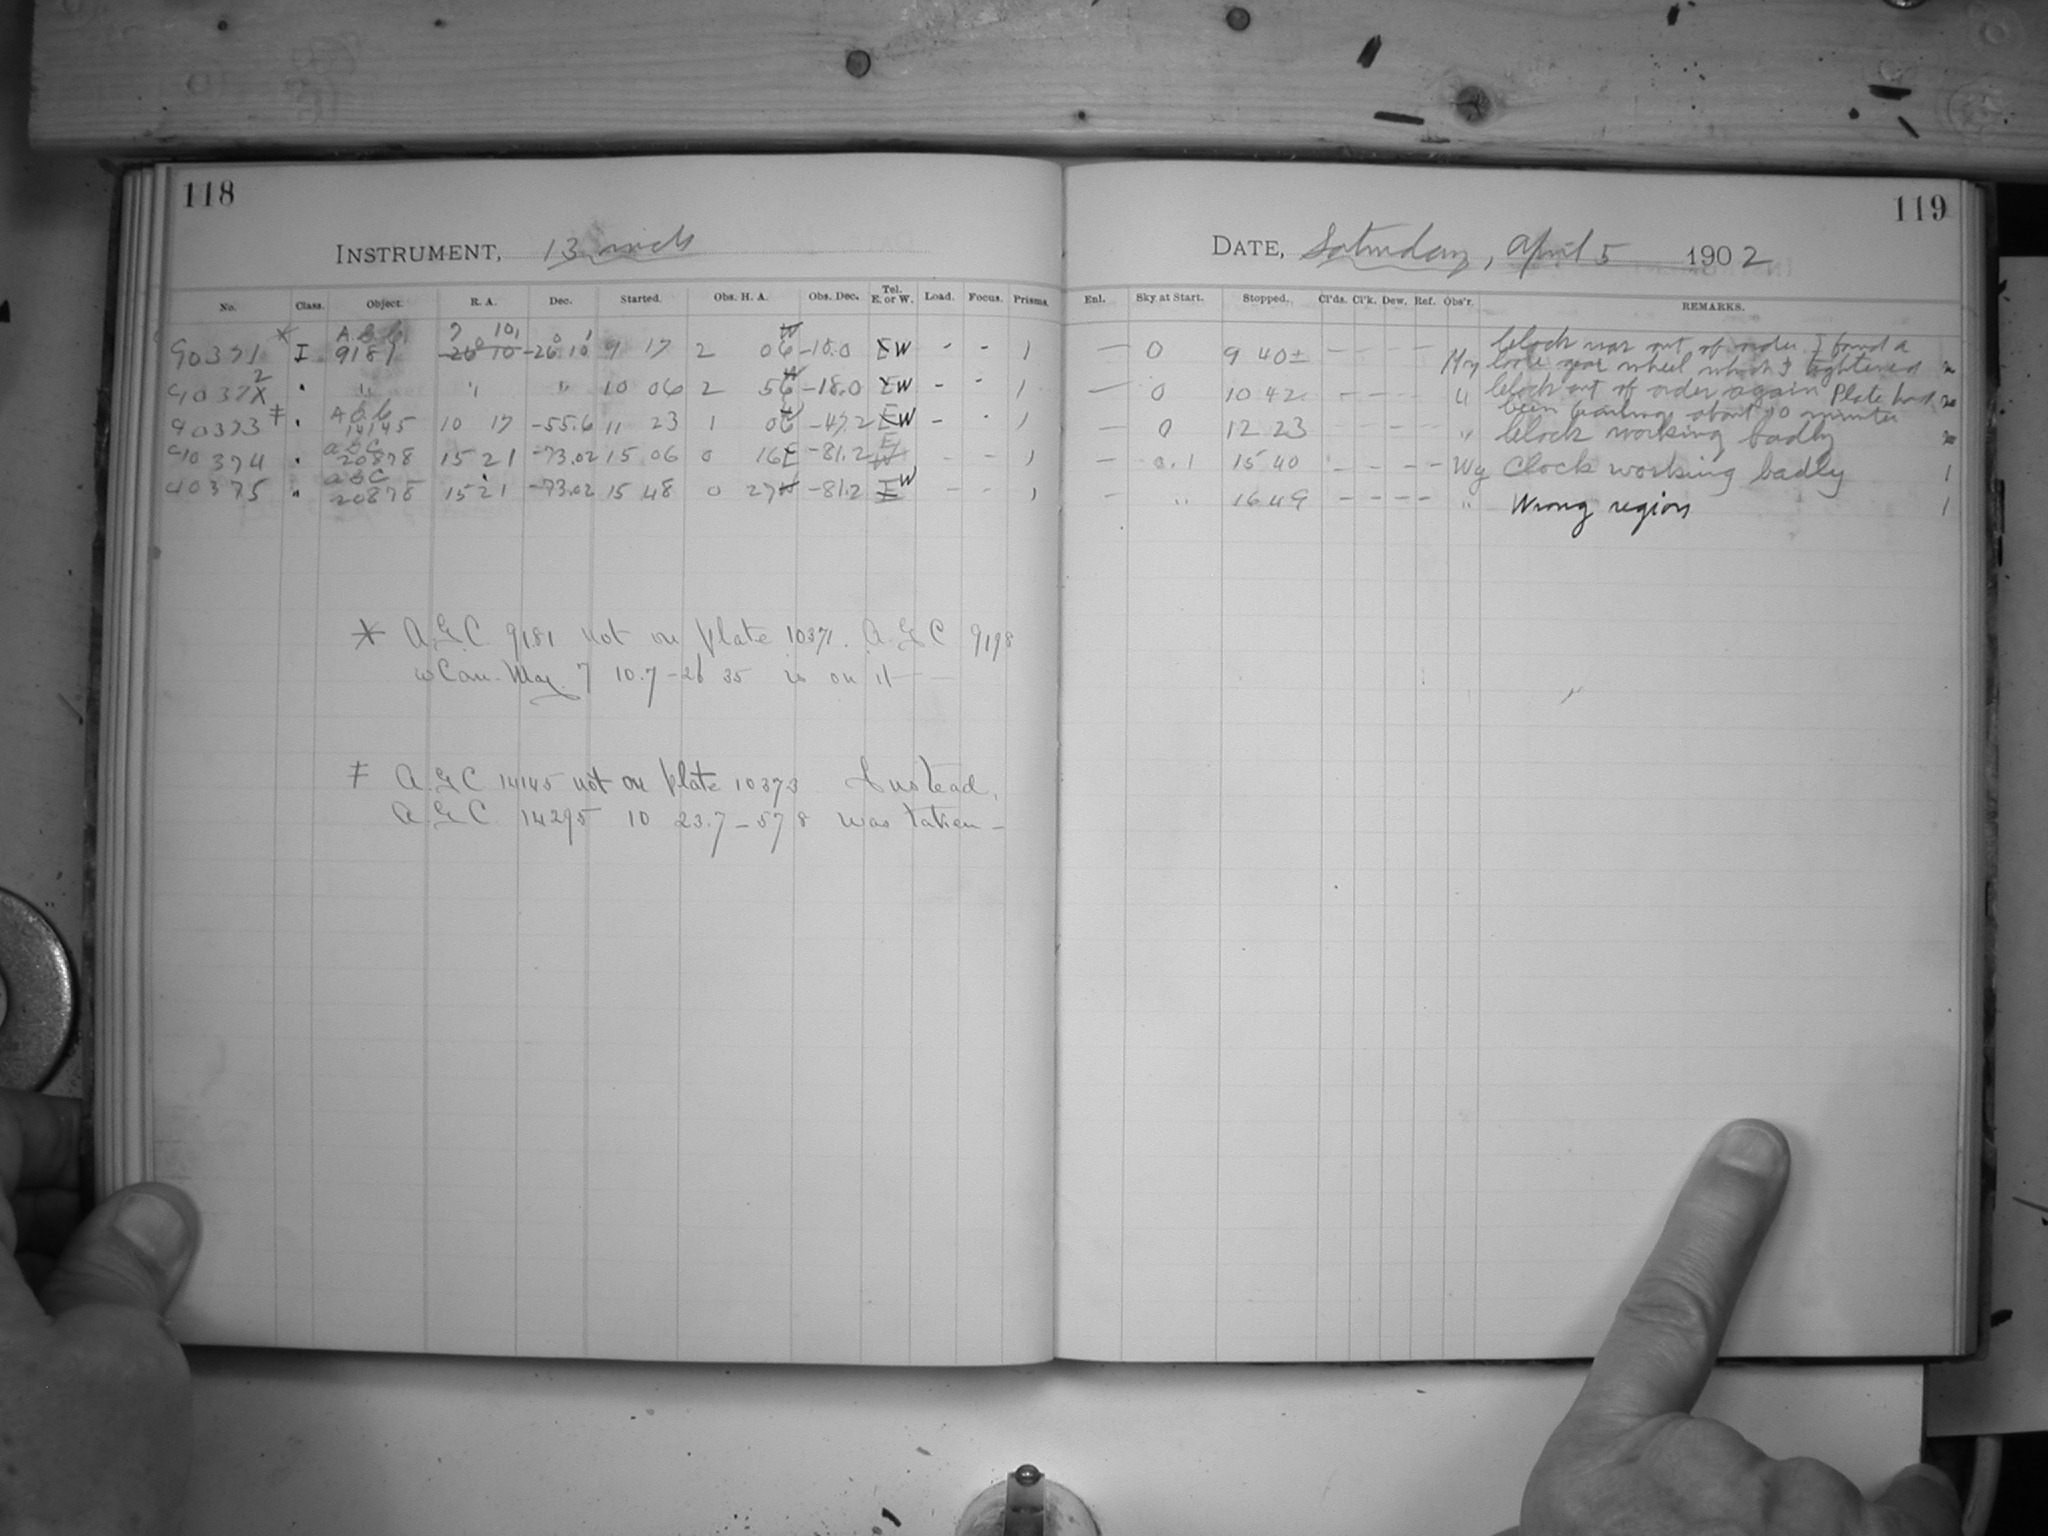 118
INSTRUMENT, 13 inch
No. Class. Object. R. A. Dec. Started. Obs. H. A. Obs. Dec. Tel. E. or W. Load. Focus. Prisms.
90371 * I A.G.C. 9181 7 10 -26 10 9 17 2 06 W -18.0 W - - 1
" " " 10 06 2 56 W -18.0 W - - 1
90373 ‡ " A.G.C. 14145 10 17 -55.6 11 23 1 -47.2 W - - 1
90374 " A.G.C. 20878 15 21 -73.02 15 06 0 16 E -81.2 E - - 1
90375 " A.G.C. 20878 15 21 -73.02 15 48 0 27 W -81.2 W - - 1
* A.G.C. 9181 not on plate 10371. A.G.C 9198
Can. Maj. 7 10.7 -26 35 is on it
‡ A.G.C 14145 not on plate 10373 Instead,
A.G.C. 14295 10 23.7 -57 8 was taken -
119
DATE, Saturday, April 5 1902
Enl. Sky at Start. Stopped. Cl'ds. Cl'k. Dew. Ref. Obs'r. REMARKS.
— 0 9 40± - - - - Clock was out of order. I found a
loose gear wheel which I tightened
— 0 10 42 - - - - " Clock out of order again Plate had
been trailing about 10 minutes
— 0 12 23 - - - - " Clock working badly
— 0.1 15 40 - - - - Wy Clock working badly 1
- " 16 49 - - - - " Wrong region 1